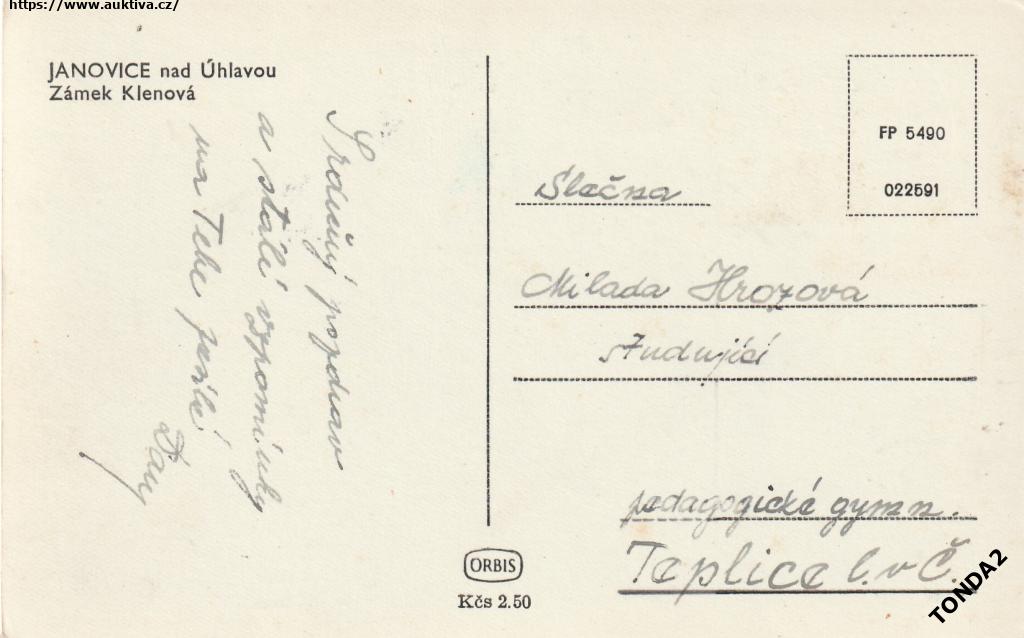 https://www.auktiva.cz/
JANOVICE nad Úhlavou
Zámek Klenová
Srdečný pozdrav
a stálé vzpomínky
na Tebe
FP 5490
022591
Slečna
Milada Hrozová
studující
pedagogické gymn.
Teplice l.v Č.
ORBIS
Kčs 2.50
TONDA2